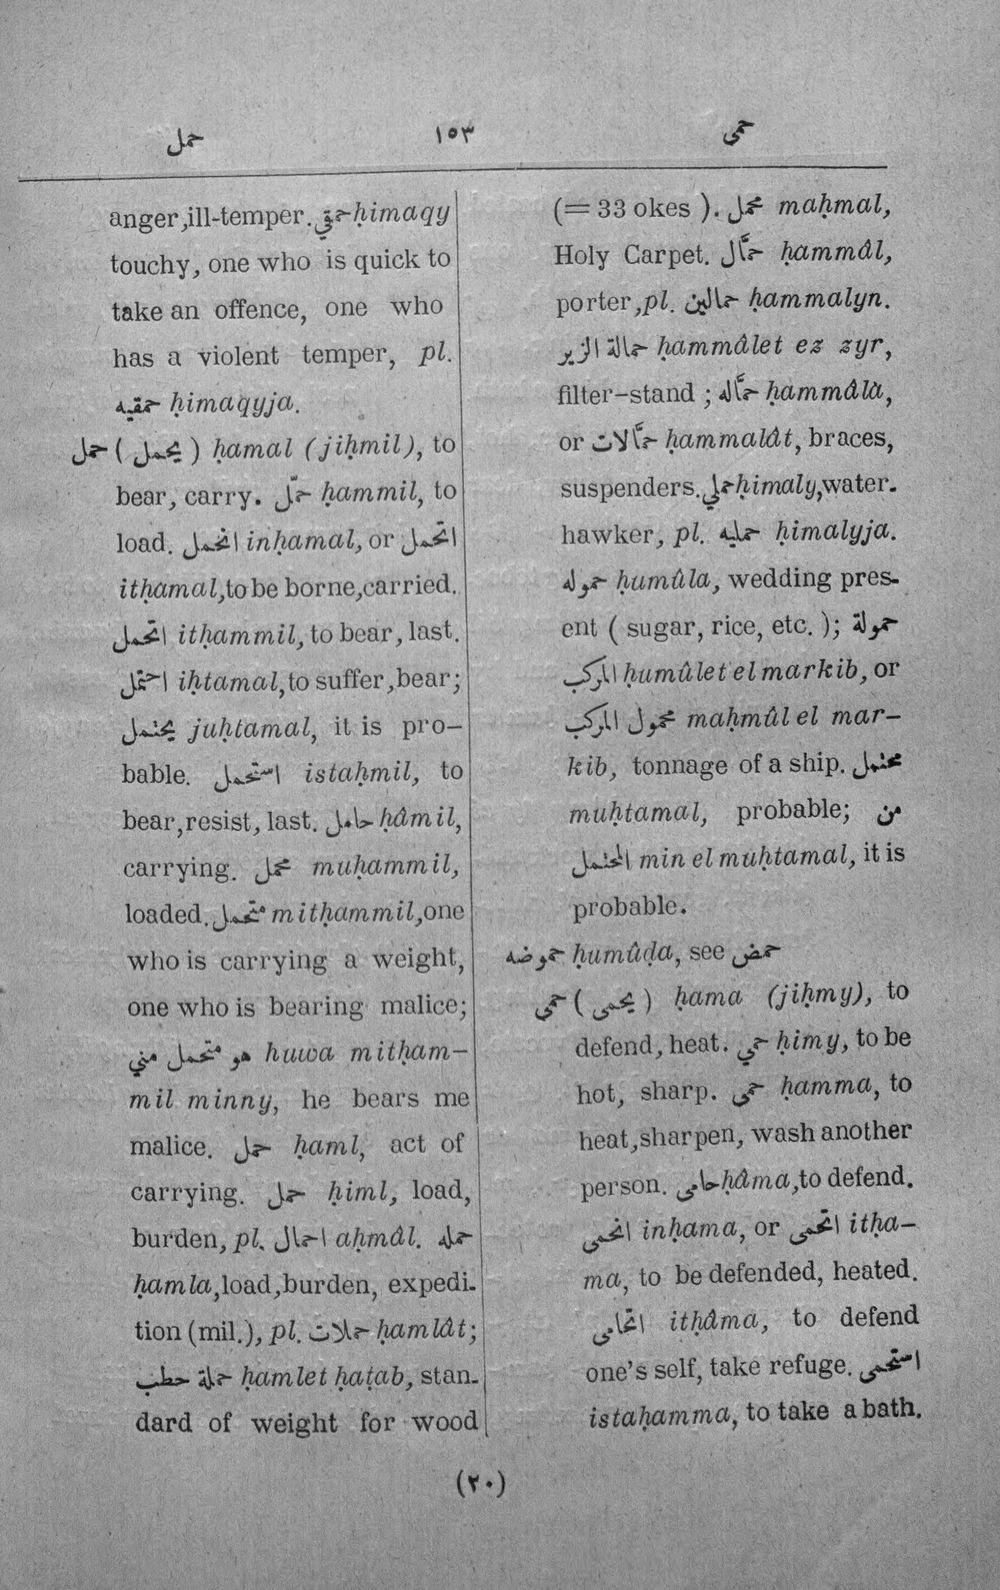 حمل ١٥٣ حمى
anger,ill-temper. حمقي ḥimaqy
touchy, one who is quick to
take an offence, one who
has a violent temper, pl.
حمقيه ḥimaqyja.
حمل ( يحمل ) ḥamal (jiḥmil), to
bear, carry. حمّل ḥammil, to
load. انحمل inḥamal, or اتحمل
itḥamal, to be borne, carried.
اتحمل itḥammil, to bear, last.
احتمل iḥtamal, to suffer, bear;
يحتمل juḥtamal, it is pro-
bable. استحمل istaḥmil, to
bear, resist, last. حامل ḥâmil,
carrying. محمل muḥammil,
loaded. متحمل mitḥammil, one
who is carrying a weight,
one who is bearing malice;
هو متحمل مني huwa mitḥam-
mil minny, he bears me
malice. حمل ḥaml, act of
carrying. حمل ḥiml, load,
burden, pl. احمال aḥmâl. حمله
ḥamla, load, burden, expedi-
tion (mil.), pl. حملات ḥamlât;
حملة حطب ḥamlet ḥaṭab, stan-
dard of weight for wood
(= 33 okes ). محمل maḥmal,
Holy Carpet. حمَّال ḥammâl,
porter, pl. حمالين ḥammalyn.
حمالة الزير ḥammâlet ez zyr,
filter-stand ; حمَّاله ḥammâla,
or حمَّالات ḥammalât, braces,
suspenders. حملي ḥimaly, water-
hawker, pl. حمليه ḥimalyja.
حموله ḥumûla, wedding pres-
ent ( sugar, rice, etc. ); حمولة
المركب ḥumûlet el markib, or
محمول المركب maḥmûl el mar-
kib, tonnage of a ship. محتمل
muḥtamal, probable; من
المحتمل min el muḥtamal, it is
probable.
حموضه ḥumûḍa, see حمض
حمي ( يحمى ) ḥama (jiḥmy), to
defend, heat. حمي ḥimy, to be
hot, sharp. حمى ḥamma, to
heat, sharpen, wash another
person. حامى ḥâma, to defend.
انحمى inḥama, or اتحمى itḥa-
ma, to be defended, heated.
اتحامى itḥâma, to defend
one's self, take refuge. استحمى
istaḥamma, to take a bath.
(٢٠)